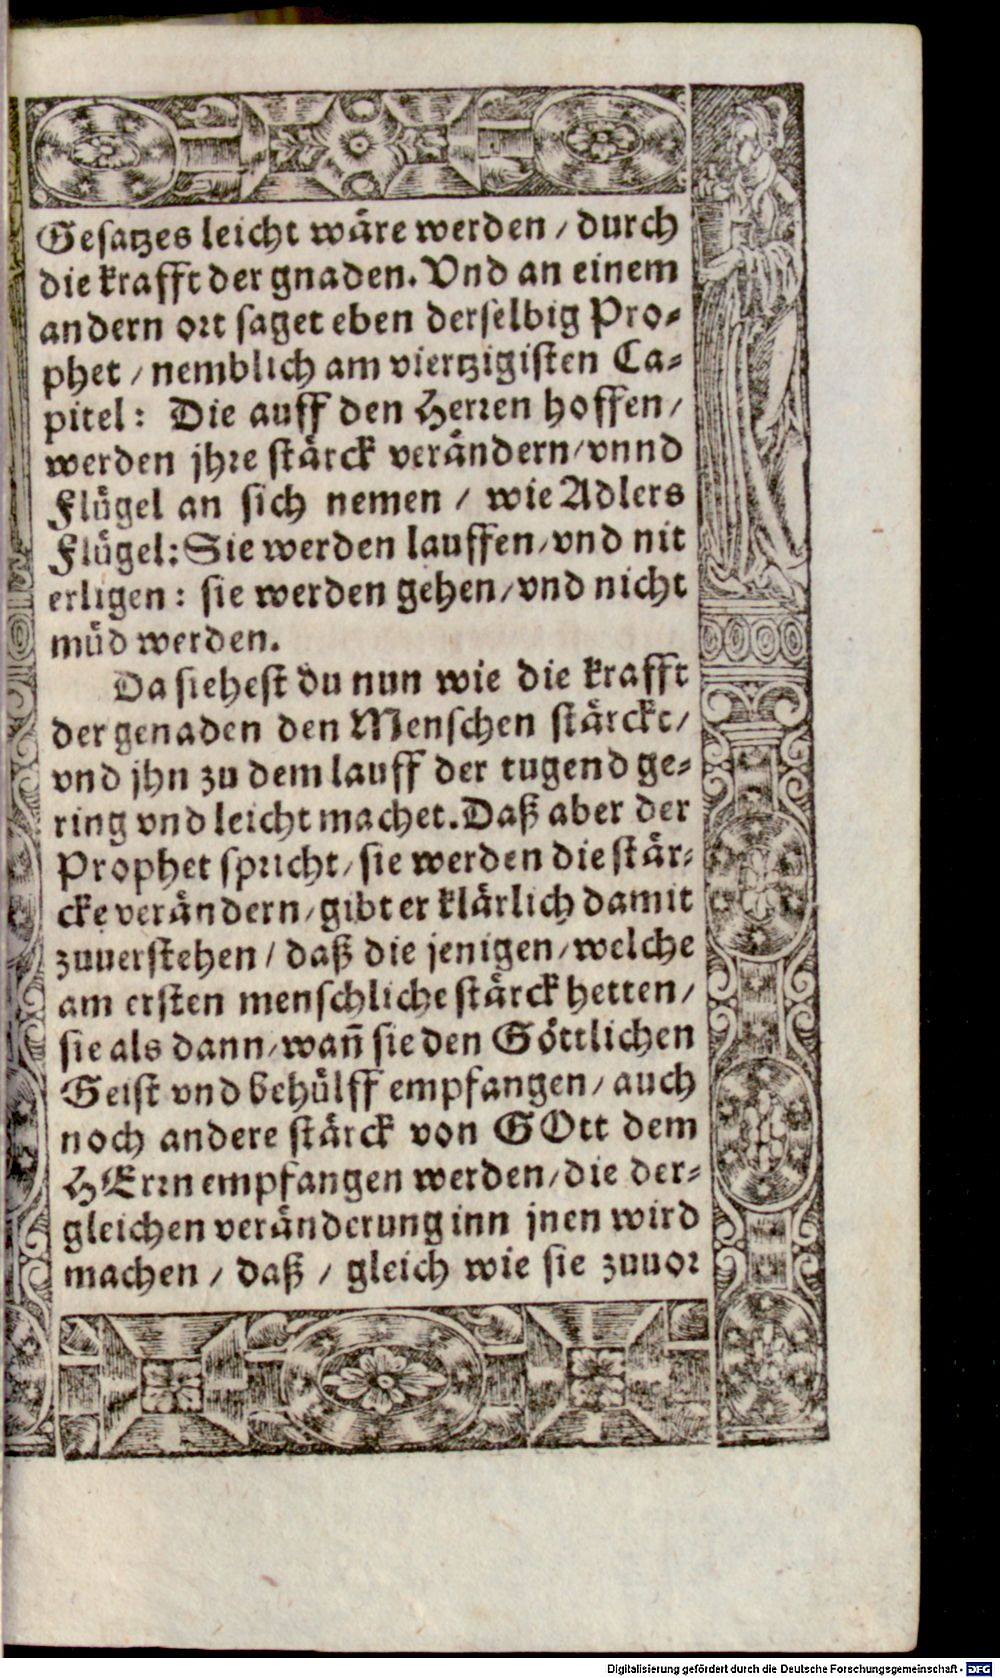 Gesatzes leicht wäre werden / durch
die krafft der gnaden. Vnd an einem
andern ort saget eben derselbig Pro-
phet / nemblich am viertzigisten Ca-
pitel: Die auff den Herren hoffen /
werden jhre stärck verändern / vnnd
Flügel an sich nemen / wie Adlers
Flügel: Sie werden lauffen / vnd nit
erligen: sie werden gehen / vnd nicht
müd werden.
Da siehest du nun wie die krafft
der genaden den Menschen stärckt /
vnd jhn zu dem lauff der tugend ge-
ring vnd leicht machet. Daß aber der
Prophet spricht / sie werden die stär-
cke verändern / gibt er klärlich damit
zuuerstehen / daß die jenigen / welche
am ersten menschliche stärck hetten /
sie als dann / wañ sie den Göttlichen
Geist vnd behülff empfangen / auch
noch andere stärck von GOtt dem
HErrn empfangen werden / die der-
gleichen veränderung inn jnen wird
machen / daß / gleich wie sie zuuor
Digitalisierung gefördert durch die Deutsche Forschungsgemeinschaft - DFG